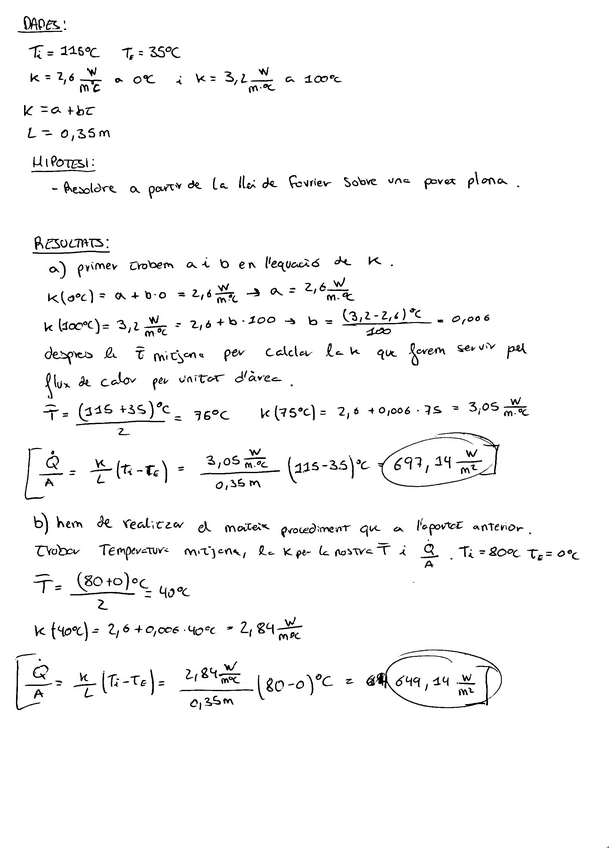 DADES:
Ti = 115ºC TE = 35ºC
K = 2,6 W/mºC a 0ºC i K = 3,2 W/m·ºC a 100ºC
K = a + bT
L = 0,35m
HIPOTESI:
- Resoldre a partir de la llei de Fourier sobre una paret plana.
RESULTATS:
a) primer trobem a i b en l'equació de K.
K(0ºC) = a + b·0 = 2,6 W/mºC → a = 2,6 W/m·ºC
K(100ºC) = 3,2 W/mºC = 2,6 + b·100 → b = (3,2-2,6)ºC/100 = 0,006
despres la T̄ mitjana per calclar la k que farem servir pel
flux de calor per unitat d'àrea.
T̄ = (115+35)ºC/2 = 75ºC K(75ºC) = 2,6 + 0,006·75 = 3,05 W/m·ºC
Q̇/A = K/L (Ti-TE) = 3,05 W/m·ºC / 0,35m (115-35)ºC = 697,14 W/m²
b) hem de realitzar el mateix procediment que a l'apartat anterior.
Trobar Temperatura mitjana, la K per la nostra T̄ i Q̇/A. Ti = 80ºC TE = 0ºC
T̄ = (80+0)ºC/2 = 40ºC
K(40ºC) = 2,6 + 0,006·40ºC = 2,84 W/mºC
Q̇/A = K/L (Ti-TE) = 2,84 W/mºC / 0,35m (80-0)ºC = 649,14 W/m²